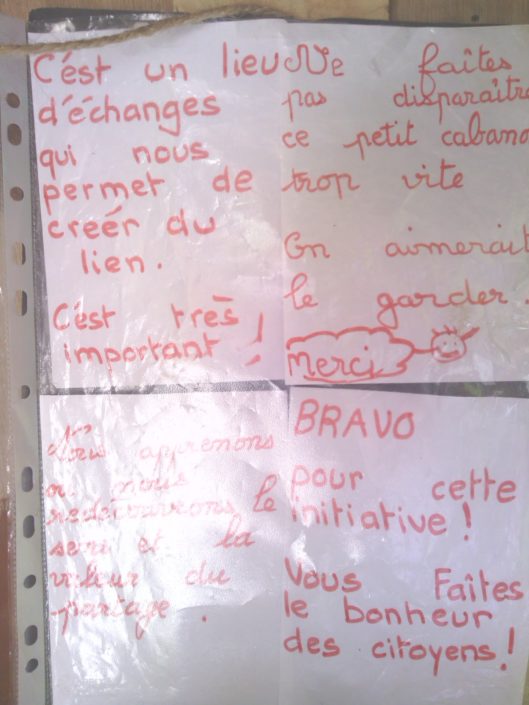 C'est un lieu
d'échanges
qui nous
permet de
créer du
lien.
C'est très
important !
Ne faîtes
pas disparaître
ce petit cabano
trop vite
On aimerait
le garder
Merci
Nous apprenons
ou nous
redécouvrons le
sens et la
valeur du
partage.
BRAVO
pour cette
initiative !
Vous Faîtes
le bonheur
des citoyens !